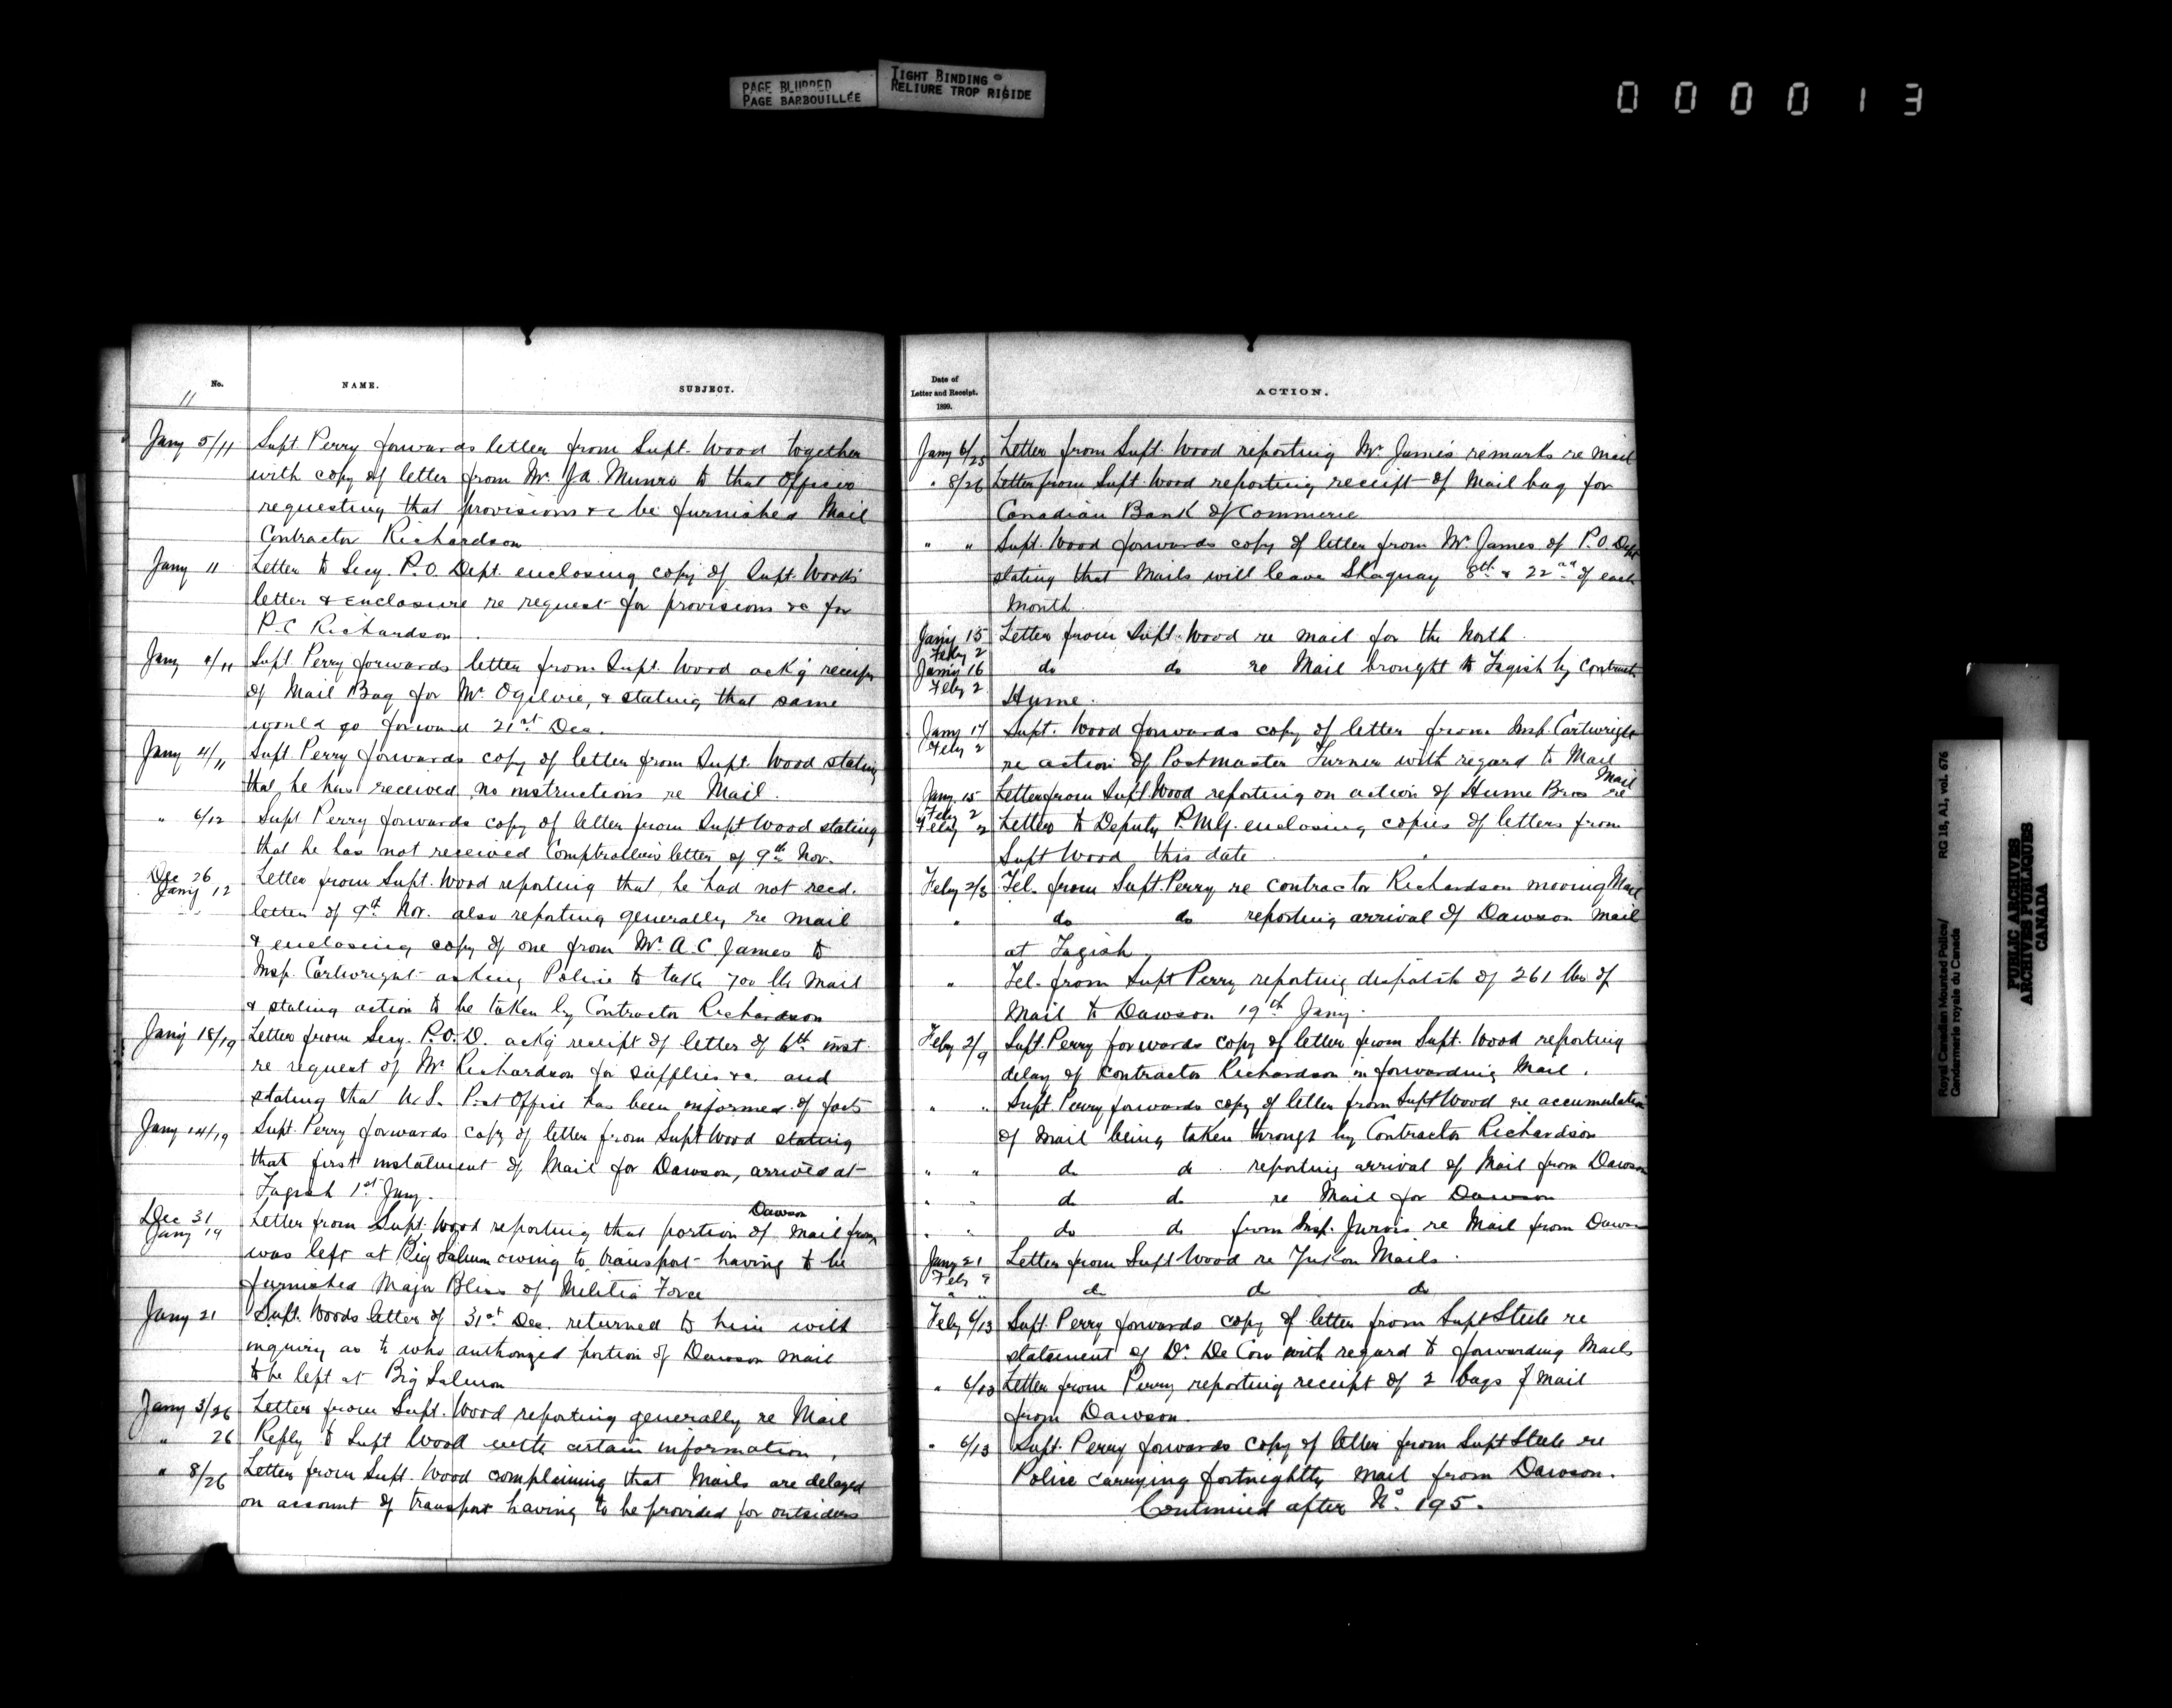 PAGE BLURRED
PAGE BARBOUILLÉE
TIGHT BINDING
RELIURE TROP RIGIDE
000013
No. NAME. SUBJECT.
11
Jany 5/11 Supt. Perry forwards letter from Supt. Wood together
with copy of letter from Mr. J.A. Munro to that Officer
requesting that provisions &c be furnished Mail
Contractor Richardson
Jany 11 Letter to Secy. P.O. Dept. enclosing copy of Supt. Wood's
letter & enclosure re request for provisions &c for
P.C. Richardson
Jany 4/11 Supt. Perry forwards letter from Supt. Wood ack'g receipt
of Mail Bag for Mr. Ogilvie, & stating that same
would go forward 21st Dec.
Jany 4/11 Supt Perry forwards copy of letter from Supt. Wood stating
that he has received no instructions re Mail.
" 6/12 Supt Perry forwards copy of letter from Supt Wood stating
that he has not received Comptroller's letter of 9th Nov.
Dec 26
Jany 12 Letter from Supt. Wood reporting that he had not recd.
letter of 9th Nov. also reporting generally re mail
& enclosing copy of one from Mr. A.C. James to
Insp. Cartwright asking Police to take 700 lbs Mail
& stating action to be taken by Contractor Richardson
Jany 18/19 Letter from Secy. P.O.D. ack'g receipt of letter of 6th inst.
re request of Mr Richardson for supplies &c. and
stating that U.S. Post Office has been informed of facts
Jany 14/19 Supt. Perry forwards copy of letter from Supt Wood stating
that first instalment of Mail for Dawson, arrived at
Tagish 1st Jany.
Dec 31
Jany 19 Letter from Supt. Wood reporting that portion of Mail from Dawson
was left at Big Salmon owing to transport having to be
furnished Major Bliss of Militia Force
Jany 21 Supt. Woods letter of 31st Dec. returned to him with
inquiry as to who authorized portion of Dawson mail
to be left at Big Salmon
Jany 3/26 Letter from Supt. Wood reporting generally re Mail
" 26 Reply to Supt Wood with certain information.
" 8/26 Letter from Supt. Wood complaining that Mails are delayed
on account of transport having to be provided for outsiders
Date of
Letter and Receipt.
1899.
ACTION.
Jany 6/25 Letter from Supt. Wood reporting Mr. James remarks re Mail
" 8/26 Letter from Supt. Wood reporting receipt of Mail bag for
Canadian Bank of Commerce
" " Supt. Wood forwards copy of letter from Mr. James of P.O. Dept
stating that Mails will leave Skaguay 8th & 22nd of each
Month.
Jany 15
Feby 2 Letter from Supt. Wood re mail for the North.
Jany 16
Feby 2 do do re Mail brought to Tagish by Contract.
Hume.
Jany 17
Feby 2 Supt. Wood forwards copy of letter from Insp. Cartwright
re action of Postmaster Turner with regard to Mail
Jany 15
Feby 2 Letter from Supt. Wood reporting on action of Hume Bros re Mail
Feby 2 Letter to Deputy P.M.G. enclosing copies of letters from
Supt Wood this date
Feby 2/3 Tel. from Supt. Perry re contractor Richardson moving Mail
" do do reporting arrival of Dawson Mail
at Tagish
" Tel. from Supt Perry reporting dispatch of 261 lbs of
Mail to Dawson 19th Jany.
Feby 2/9 Supt. Perry forwards copy of letter from Supt. Wood reporting
delay of contractor Richardson in forwarding Mail.
" " Supt. Perry forwards copy of letter from Supt Wood re accumulation
of Mail being taken through by Contractor Richardson
" " do do reporting arrival of Mail from Dawson
" " do do re Mail for Dawson
" " do do from Insp. Jarvis re Mail from Dawson
Jany 21
Feby 9 Letter from Supt Wood re Yukon Mails.
" " do do do
Feby 6/13 Supt. Perry forwards copy of letter from Supt Steele re
statement of Dr. De Cow with regard to forwarding Mails
" 6/13 Letter from Perry reporting receipt of 2 bags of mail
from Dawson.
" 6/13 Supt. Perry forwards copy of letter from Supt Steele re
Police carrying fortnightly mail from Dawson.
Continued after No. 195.
Royal Canadian Mounted Police/
Gendarmerie royale du Canada
RG 18, A1, vol. 676
PUBLIC ARCHIVES
ARCHIVES PUBLIQUES
CANADA